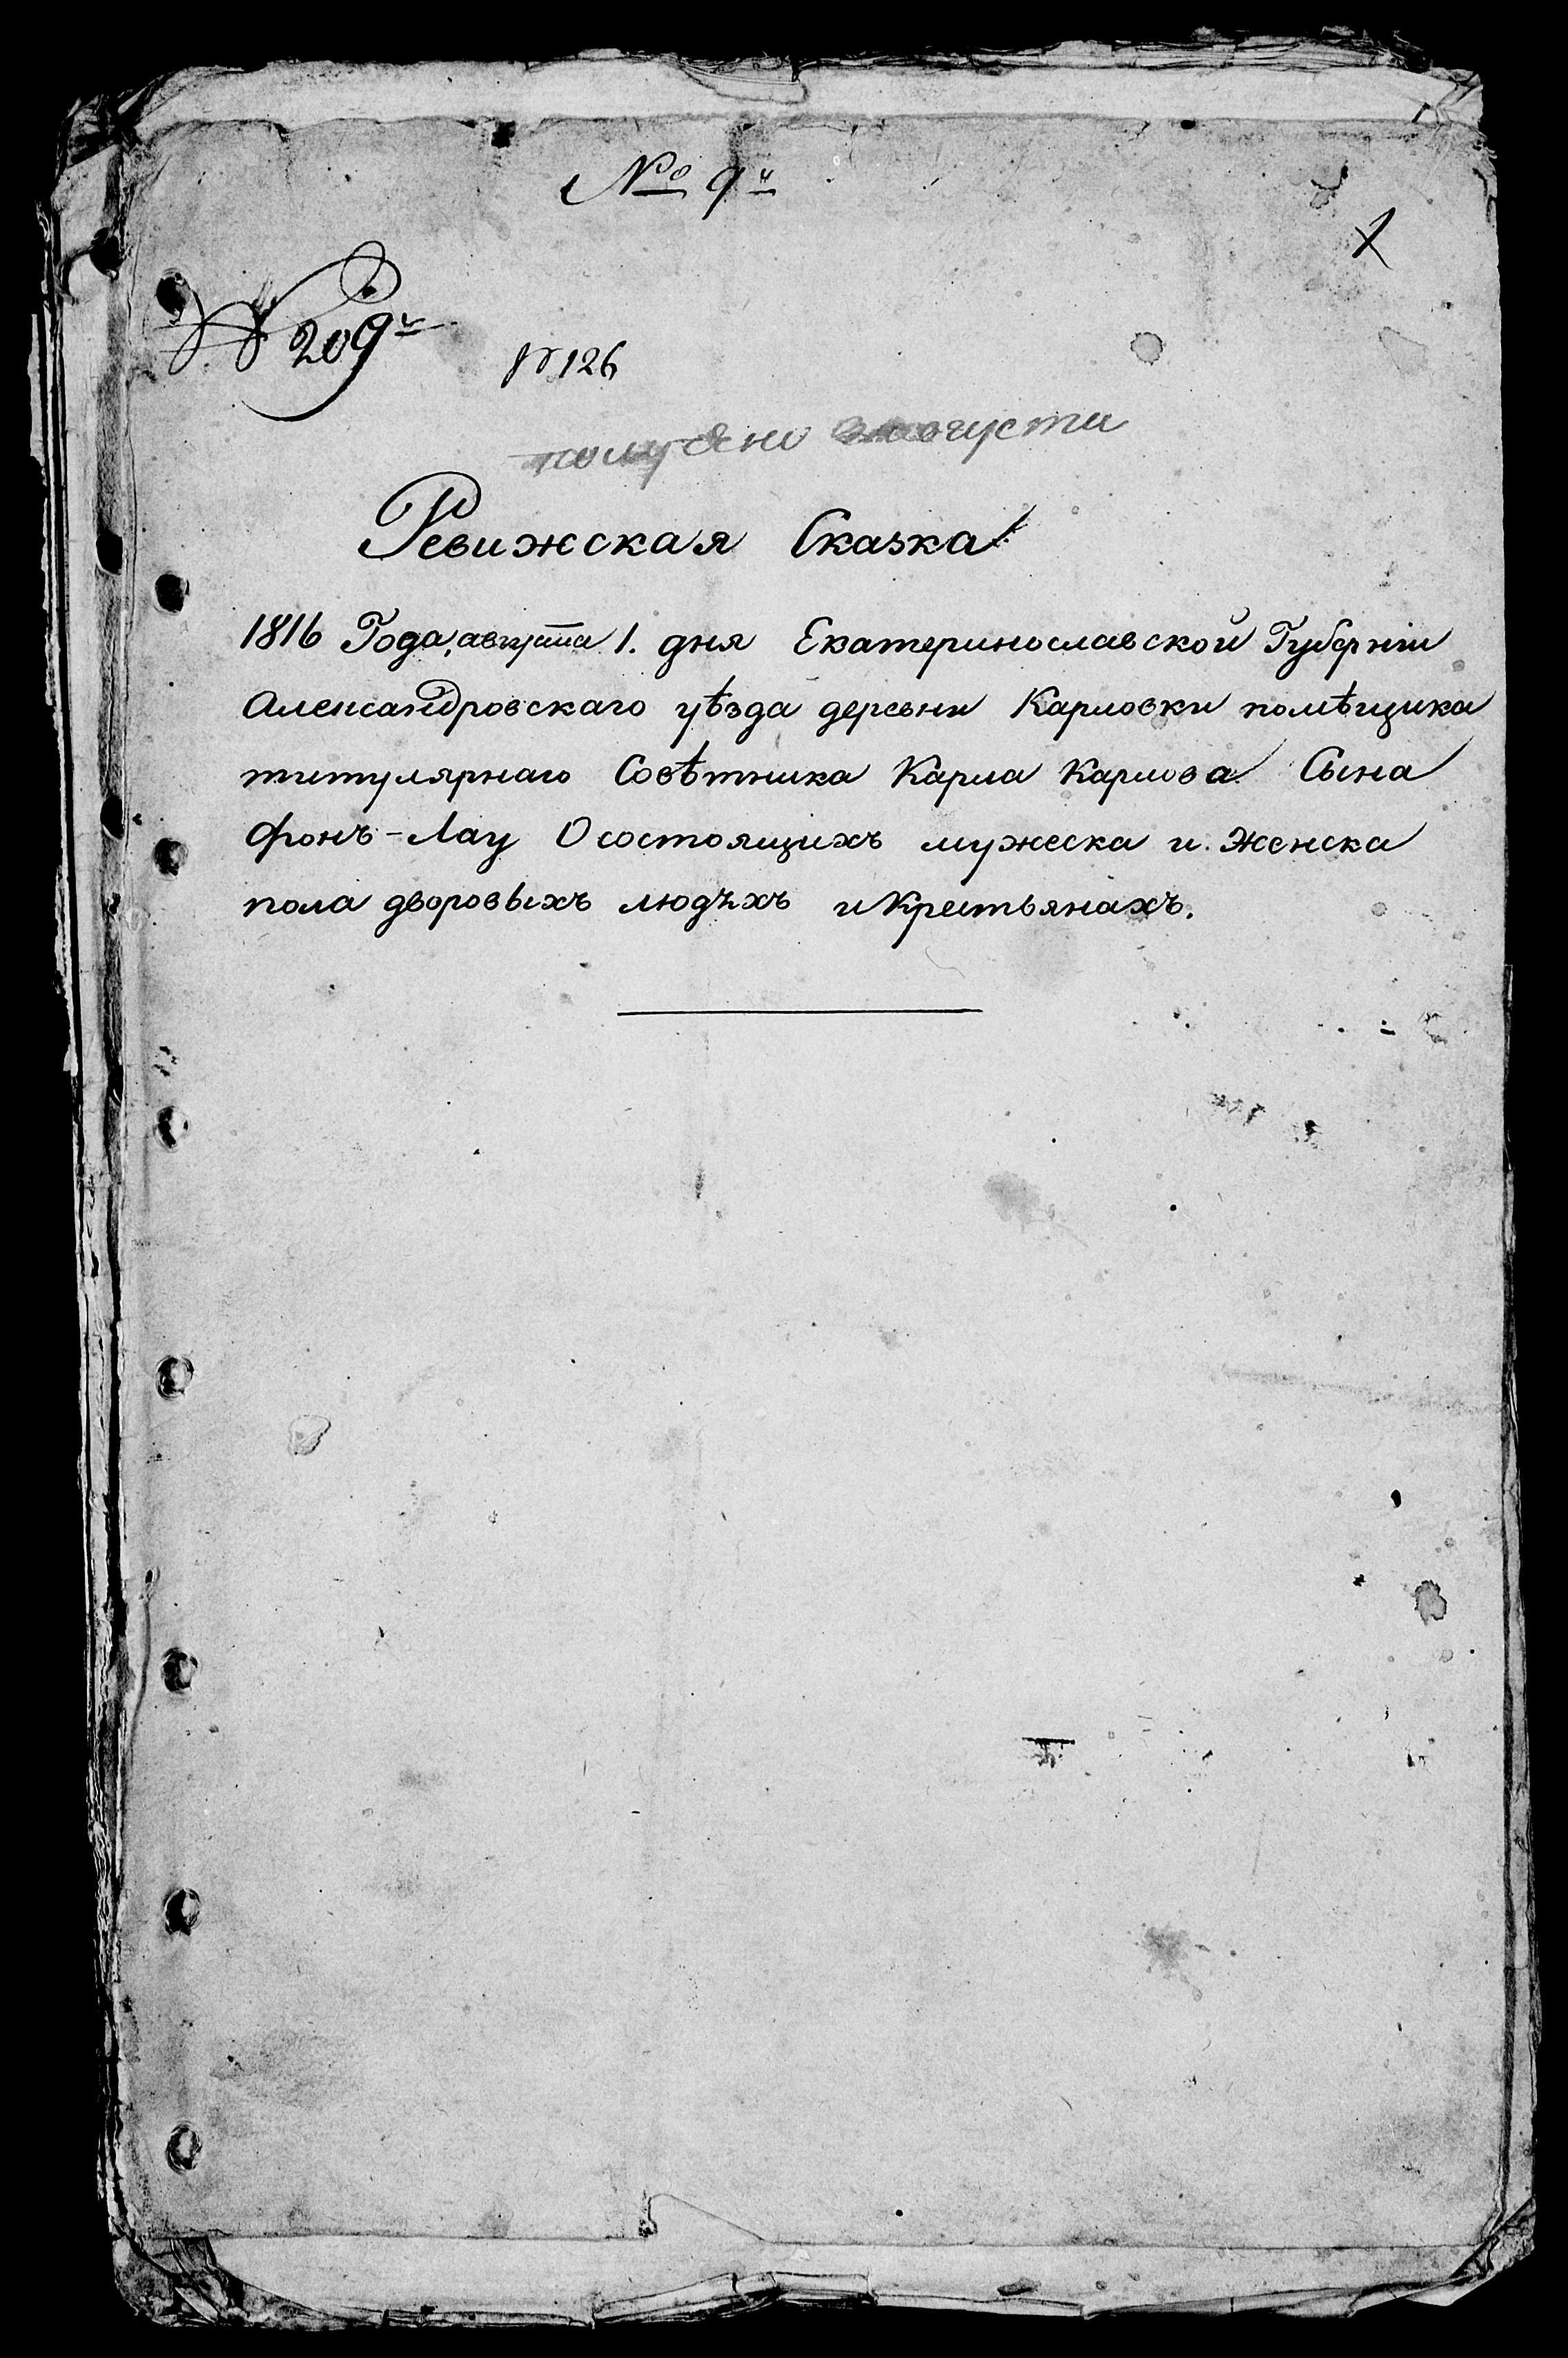 № 9й
1
№ 209й
№ 126
августа
Ревижская Сказка
1816 Года, августа 1. дня Екатеринославской Губерніи
Александровскаго уѣзда деревни Карловки помѣщика
титулярнаго Совѣтника Карла Карлова Сына
фонъ-Лау О состоящихъ мужеска и женска
пола дворовыхъ людѣхъ и Крестьянахъ.